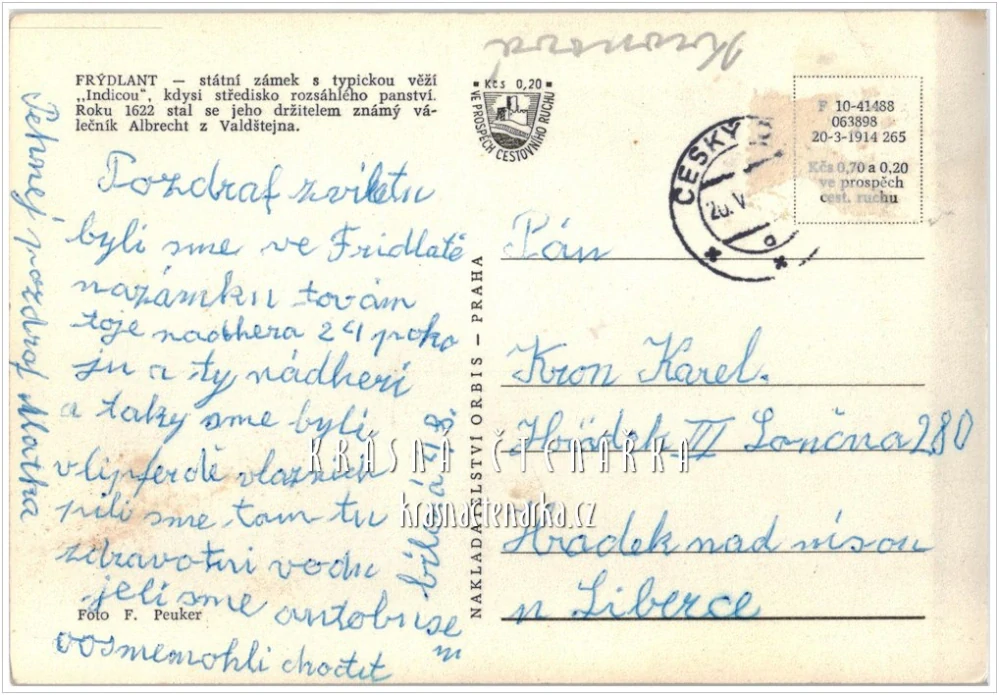 Kronová
FRÝDLANT — státní zámek s typickou věží
„Indicou“, kdysi středisko rozsáhlého panství.
Roku 1622 stal se jeho držitelem známý vá-
lečník Albrecht z Valdštejna.
Pozdraf zviletu
byli sme ve Fridlatě
nazámku továm
toje nadhera 24 poko
ju a ty nádheri
a taky sme byli
vlipferdě vlaznich
pili sme tam tu
zdravotni vodu
jeli sme autobusem
vosmemohli chodit
Pehnej pozdraf Matka
Foto F. Peuker
Kčs 0,20
VE PROSPĚCH CESTOVNÍHO RUCHU
NAKLADATELSTVÍ ORBIS — PRAHA
ČESKÝ
20.V
F 10-41488
063898
20-3-1914 265
Kčs 0,70 a 0,20
ve prospěch
cest. ruchu
Pán
Kron Karel.
Hrádek III Lončna 280
Hradek nad nisou
u Liberce
KRÁSNÁ ČTENÁŘKA
krasnactenarka.cz